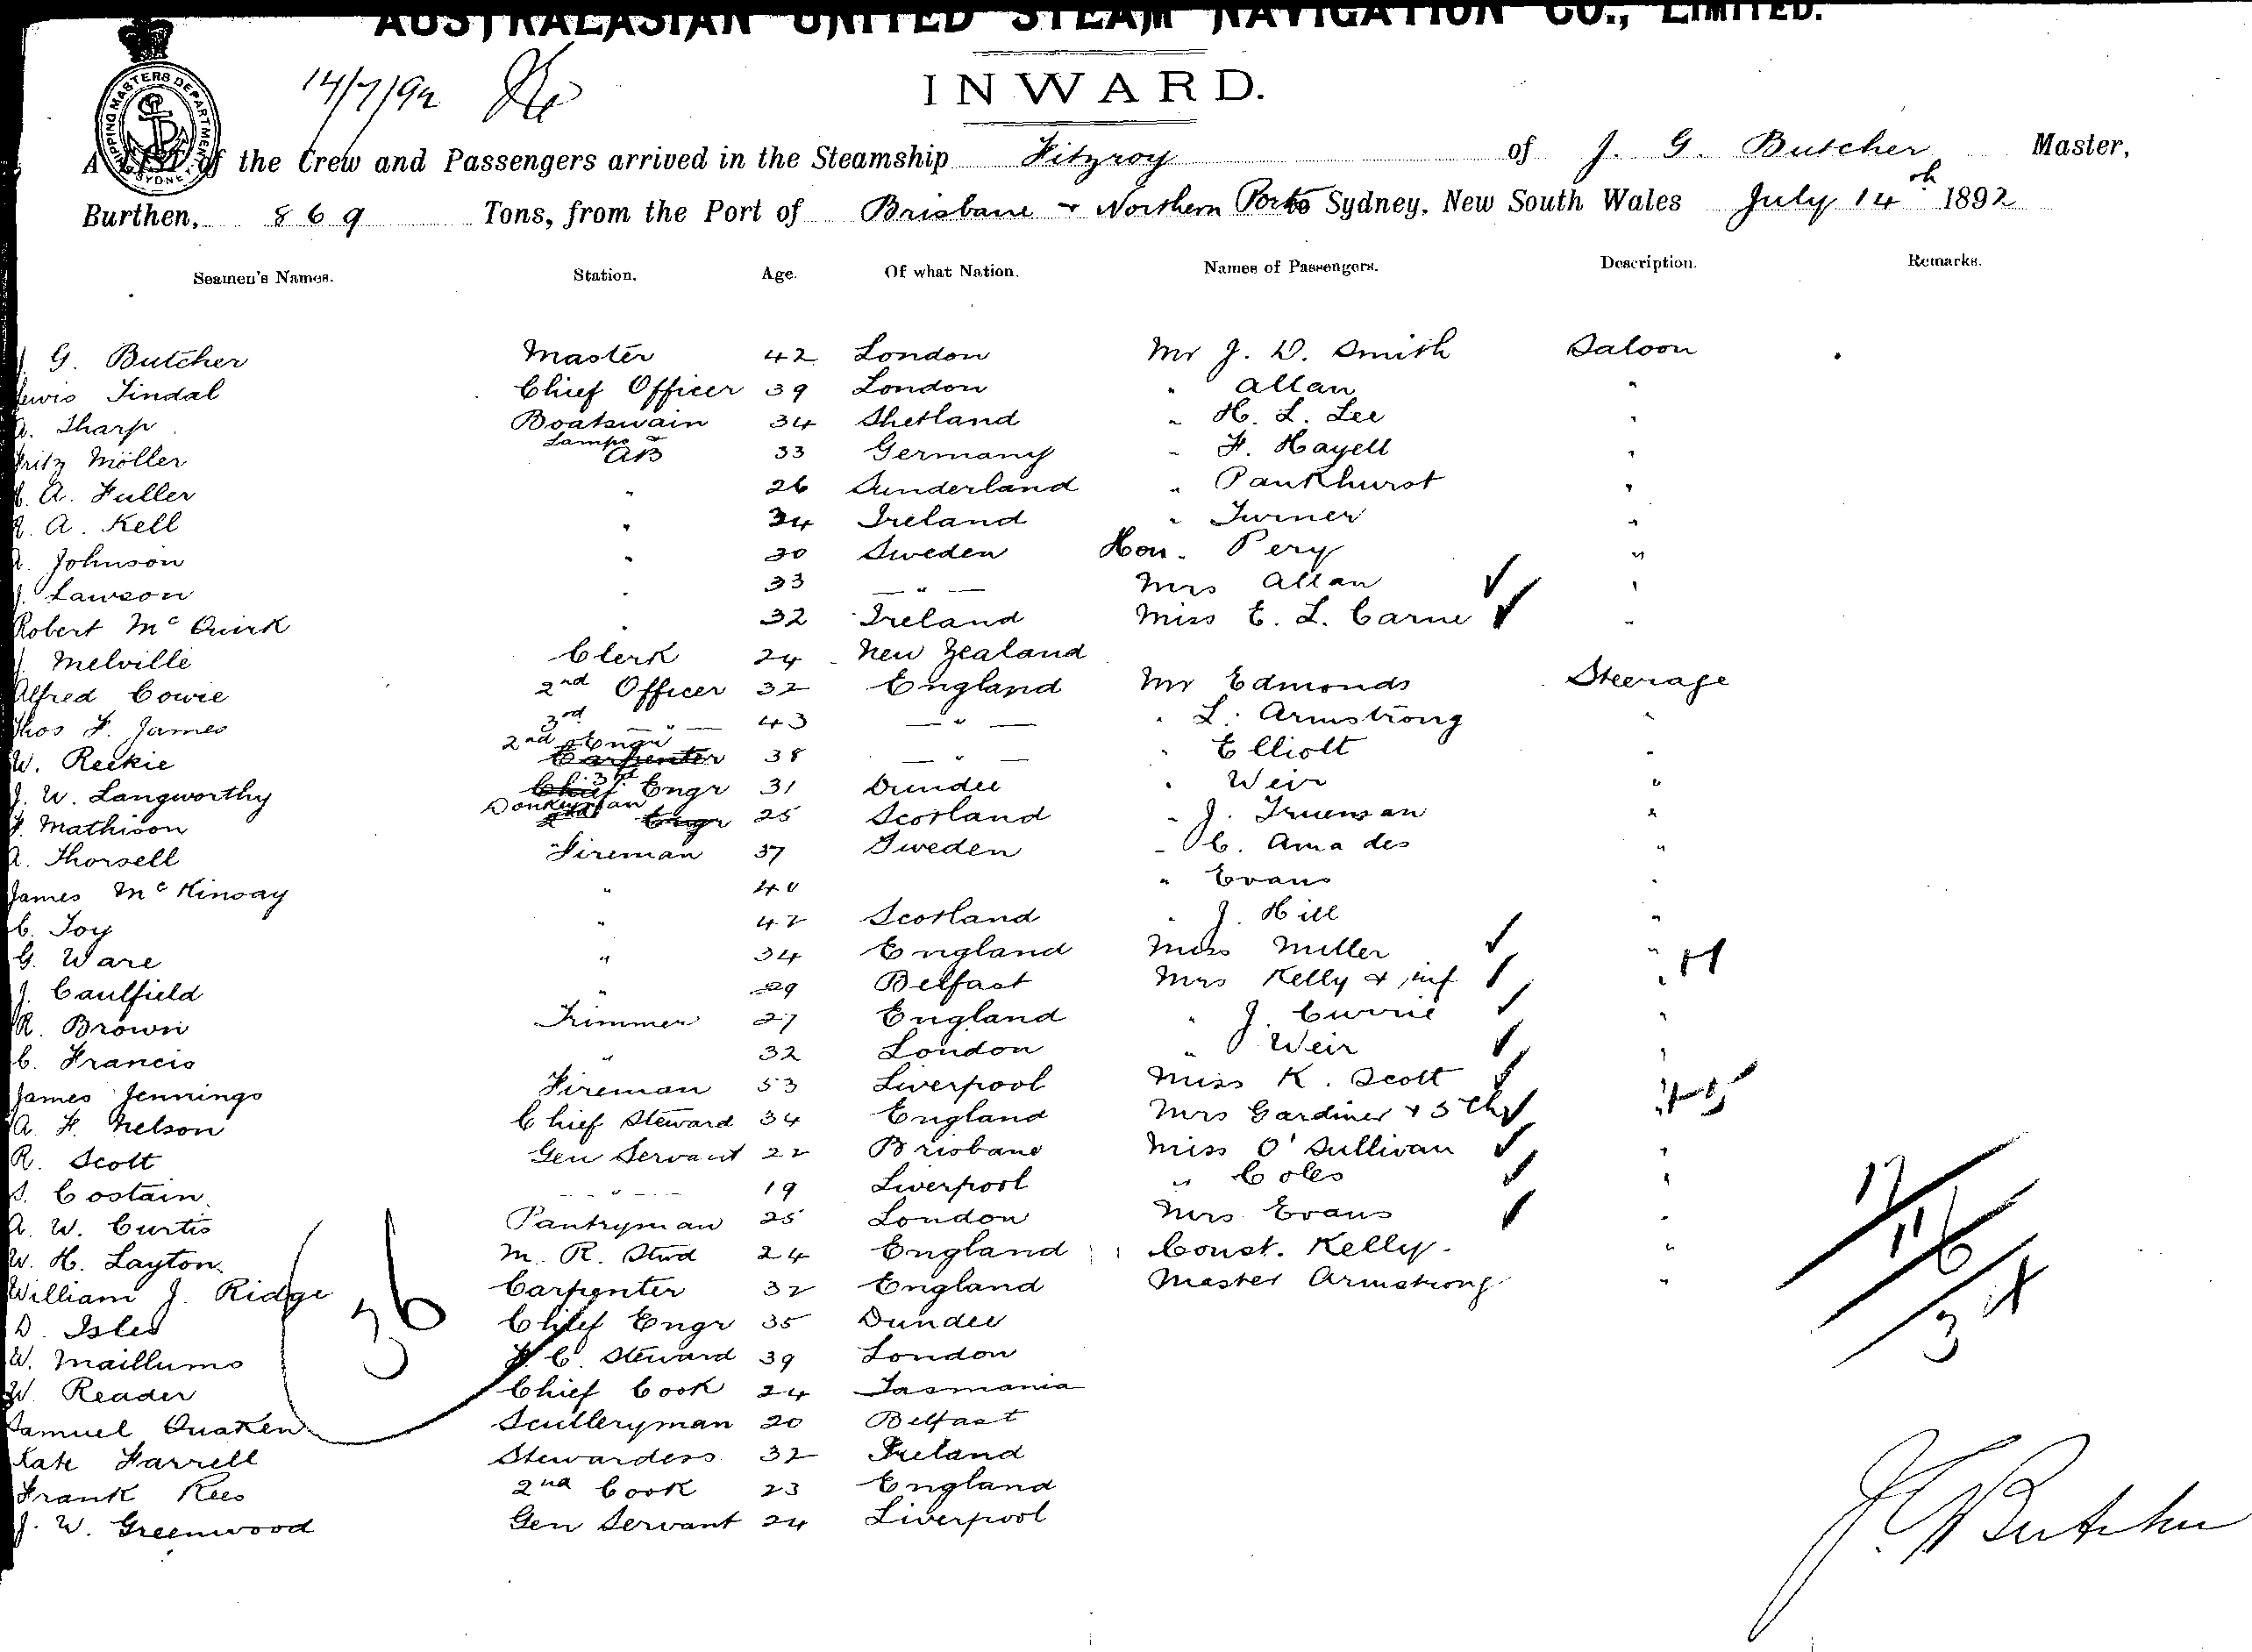 AUSTRALASIAN UNITED STEAM NAVIGATION CO., LIMITED.
SHIPPING MASTERS DEPARTMENT SYDNEY
14/7/92
INWARD.
A LIST of the Crew and Passengers arrived in the Steamship Fitzroy of J. G. Butcher Master,
Burthen, 869 Tons, from the Port of Brisbane & Northern Ports to Sydney, New South Wales July 14th 1892
Seamen's Names. Station. Age. Of what Nation. Names of Passengers. Description. Remarks.
J. G. Butcher Master 42 London Mr J. D. Smith Saloon
Lewis Tindal Chief Officer 39 London " Allan "
A. Tharp Boatswain 34 Shetland " H. L. Lee "
Fritz Möller Lamps & AB 33 Germany " F. Hayell "
A. Fuller " 26 Sunderland " Pankhurst "
A. Kell " 34 Ireland " Turner "
A. Johnson " 30 Sweden Hon. Pery "
J. Lawson " 33 — " — Mrs Allan "
Robert McQuirk " 32 Ireland Miss E. L. Carne "
J. Melville Clerk 24 New Zealand
Alfred Cowie 2nd Officer 32 England Mr Edmonds Steerage
Thos F. James 3rd — " — 43 — " — " L. Armstrong "
W. Reekie 2nd Engr Carpenter 38 — " — " Elliott "
J. W. Langworthy Chief 3rd Engr 31 Dundee " Weir "
F. Mathison Donkeyman 2nd Engr 25 Scotland " J. Trueman "
A. Thorsell Fireman 37 Sweden " C. Amades "
James McKinsay " 40 " Evans "
C. Toy " 42 Scotland " J. Hill "
G. Ware " 34 England Miss Miller "
J. Caulfield " 29 Belfast Mrs Kelly & inf "
R. Brown Trimmer 27 England " J. Currie "
C. Francis " 32 London " Weir "
James Jennings Fireman 53 Liverpool Miss K. Scott "
A. F. Nelson Chief Steward 34 England Mrs Gardiner & 5 ch "
R. Scott Gen Servant 22 Brisbane Miss O'Sullivan "
S. Costain — " — 19 Liverpool " Coles "
A. W. Curtis Pantryman 25 London Mrs Evans "
W. H. Layton M. R. Stwd 24 England Const. Kelly "
William J. Ridge Carpenter 32 England Master Armstrong "
36
D. Isles Chief Engr 35 Dundee
W. Maillums F. C. Steward 39 London
W. Reader Chief Cook 24 Tasmania
Samuel Quaken Sculleryman 20 Belfast
Kate Farrell Stewardess 32 Ireland
Frank Rees 2nd Cook 23 England
J. W. Greenwood Gen Servant 24 Liverpool
17/11/6/34
J G Butcher